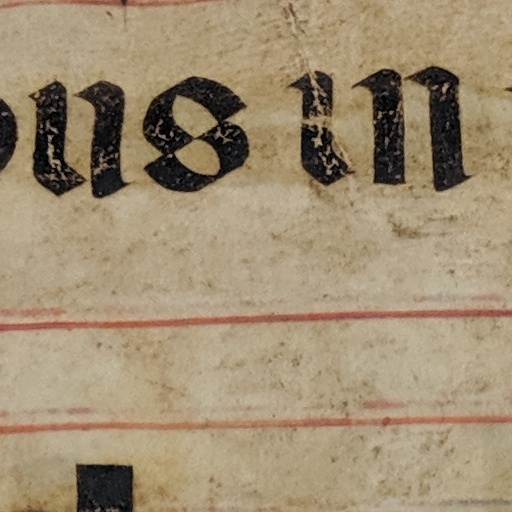 ous in